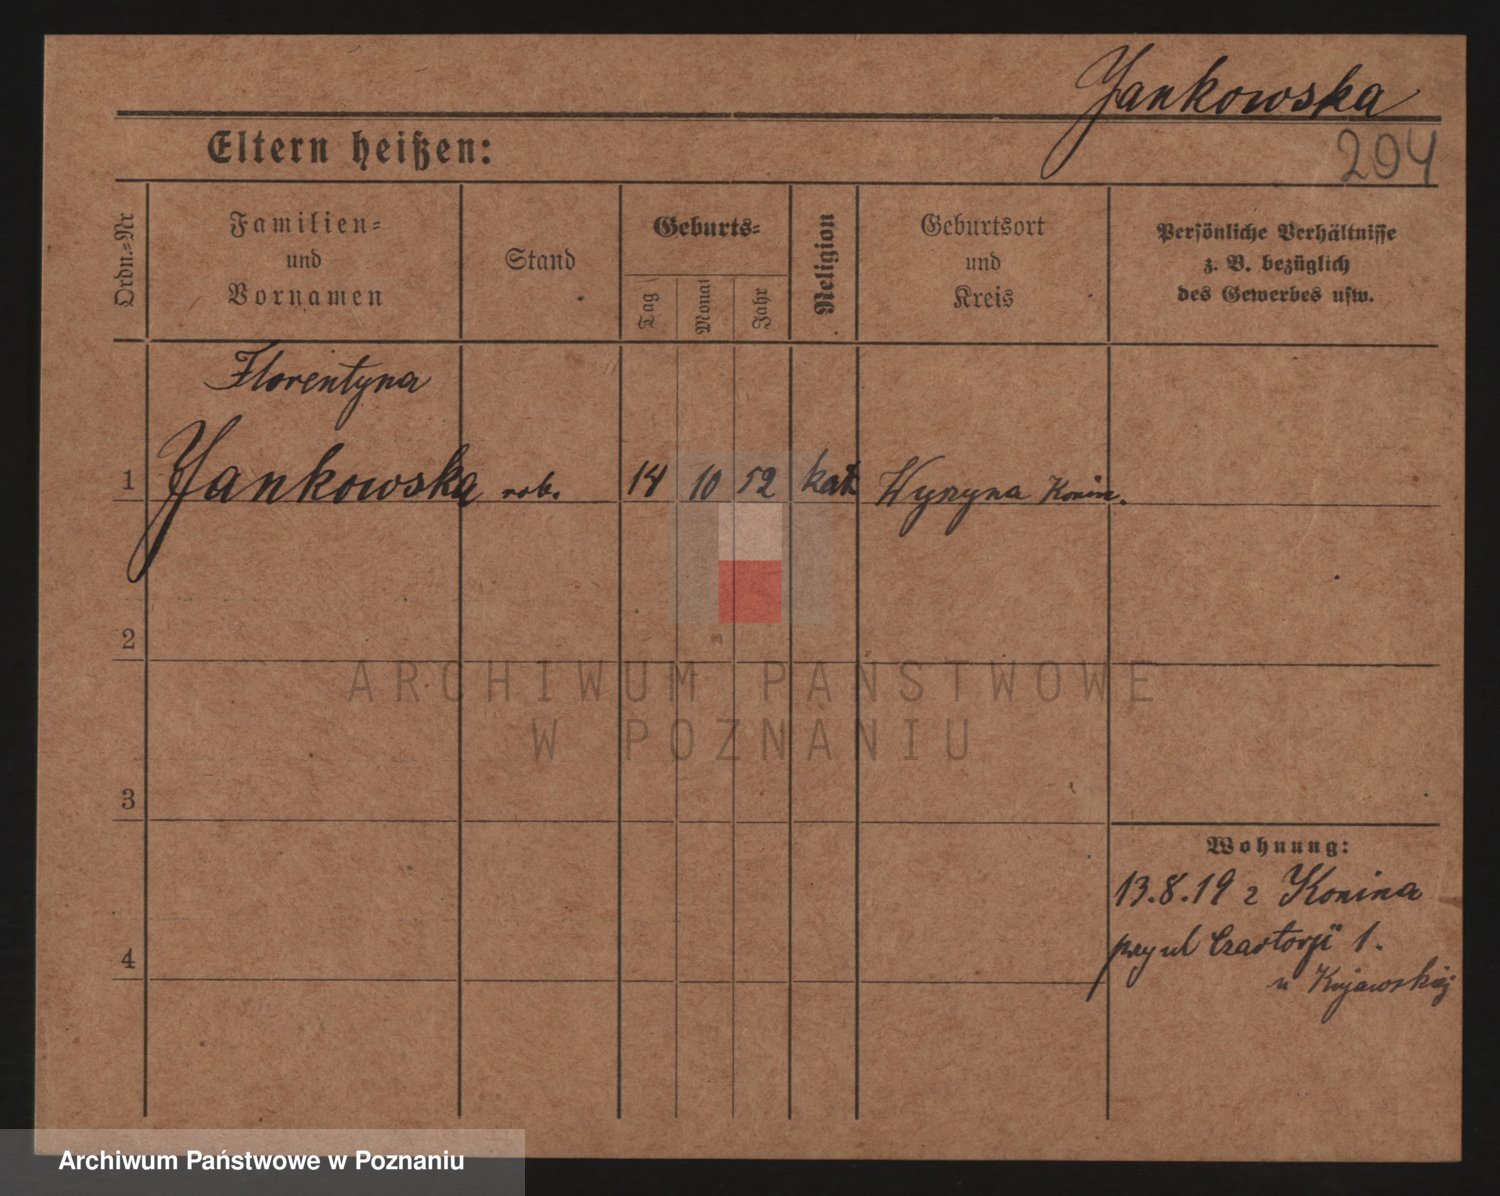 Jankowska
204
Eltern heißen:
Ordn.=Nr
Familien=
und
Vornamen
Stand
Geburts=
Tag
Monat
Jahr
Religion
Geburtsort
und
Kreis
Persönliche Verhältnisse
z. B. bezüglich
des Gewerbes usw.
Florentyna
1 Jankowska rob. 14 10 52 kat. Wyzyna Konin.
2
ARCHIWUM PAŃSTWOWE
W POZNANIU
3
Wohnung:
13.8.19 z Konina
przy ul Czartorji 1.
4
u Kujawskiej
Archiwum Państwowe w Poznaniu